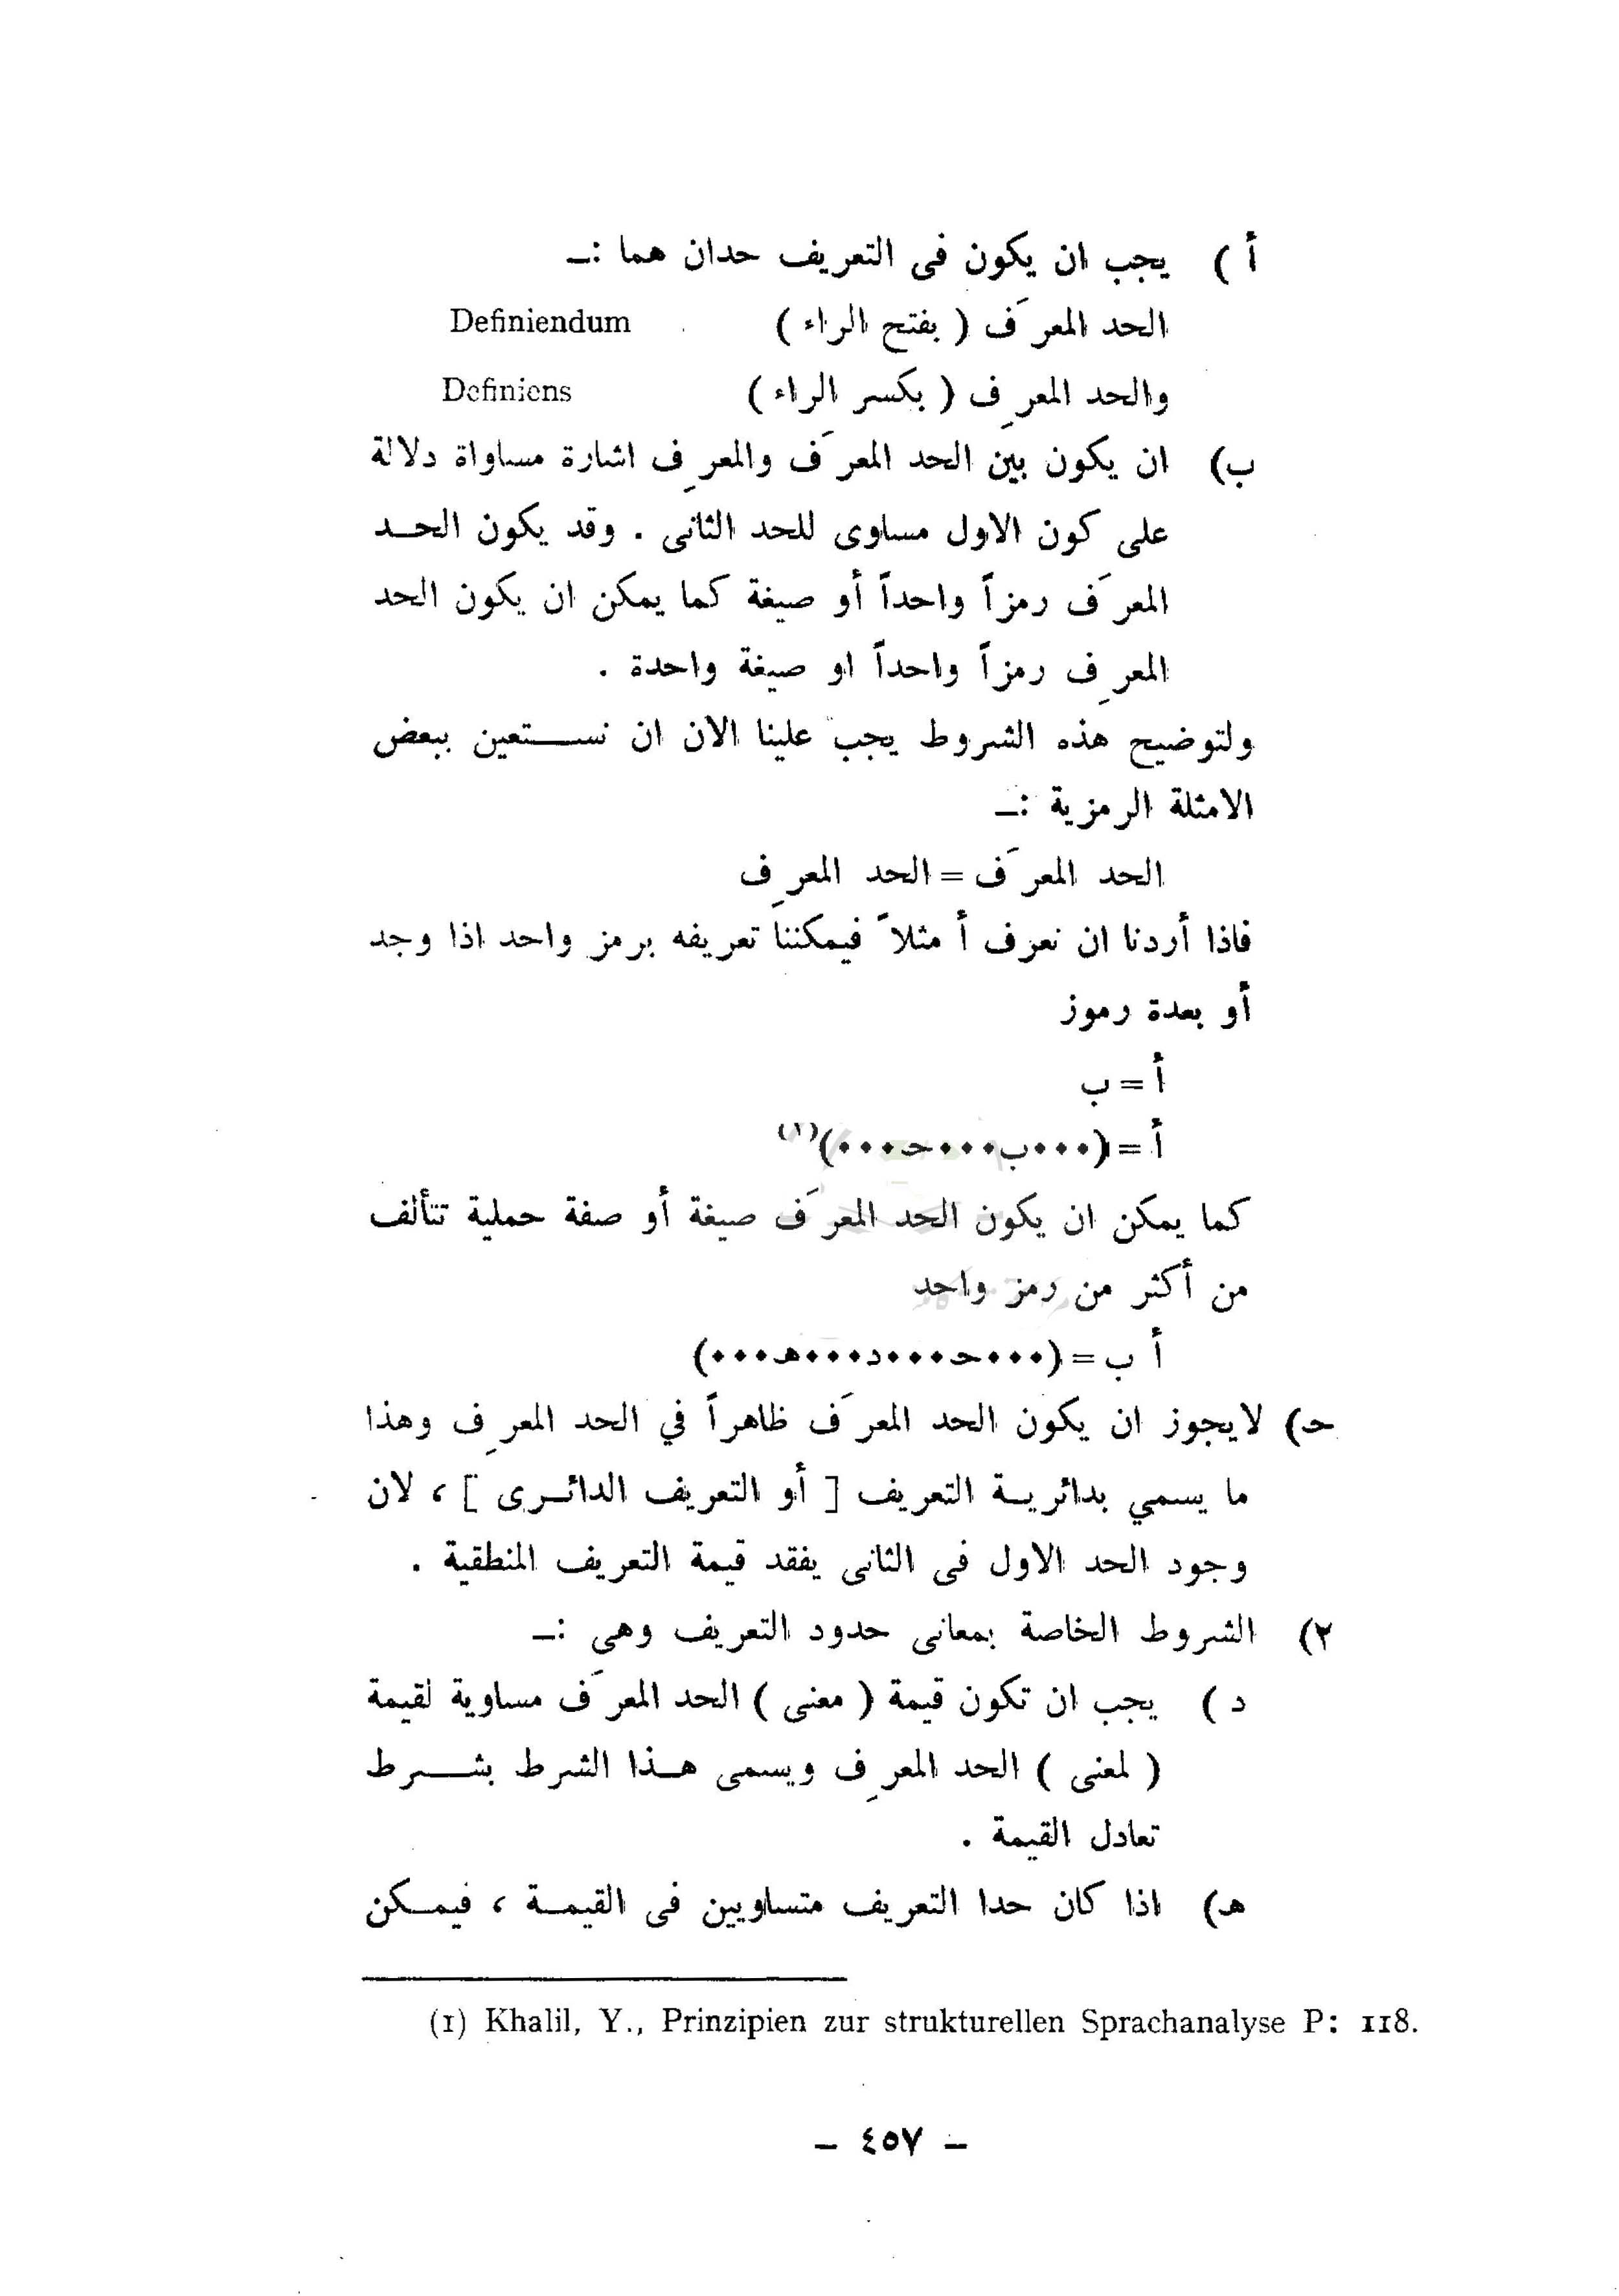 أ ) يجب ان يكون فى التعريف حدان هما :ـ
الحد المعرَف ( بفتح الراء ) Definiendum
والحد المعرِف ( بكسر الراء ) Definiens
ب) ان يكون بين الحد المعرَف والمعرِف اشارة مساواة دلالة
على كون الاول مساوى للحد الثانى . وقد يكون الحــد
المعرَف رمزاً واحداً أو صيغة كما يمكن ان يكون الحد
المعرِف رمزاً واحداً او صيغة واحدة .
ولتوضيح هذه الشروط يجب علينا الان ان نســـتعين ببعض
الامثلة الرمزية :ـ
الحد المعرَف = الحد المعرِف
فاذا أردنا ان نعرف أ مثلاً فيمكننا تعريفه برمز واحد اذا وجد
أو بعدة رموز
أ = ب
أ = (٠٠٠ب٠٠٠حـ٠٠٠)(١)
كما يمكن ان يكون الحد المعرَف صيغة أو صفة حملية تتألف
من أكثر من رمز واحد
أ ب = (٠٠٠حـ٠٠٠د٠٠٠هـ٠٠٠)
حـ) لايجوز ان يكون الحد المعرَف ظاهراً في الحد المعرِف وهذا
ما يسمي بدائريــة التعريف [ أو التعريف الدائــرى ] ، لان
وجود الحد الاول فى الثانى يفقد قيمة التعريف المنطقية .
٢) الشروط الخاصة بمعانى حدود التعريف وهي :ـ
د ) يجب ان تكون قيمة ( معنى ) الحد المعرَف مساوية لقيمة
( لمعنى ) الحد المعرِف ويسمى هــذا الشرط بشـــرط
تعادل القيمة .
هـ) اذا كان حدا التعريف متساويين فى القيمــة ، فيمــكن
(1) Khalil, Y., Prinzipien zur strukturellen Sprachanalyse P: 118.
– ٤٥٧ –